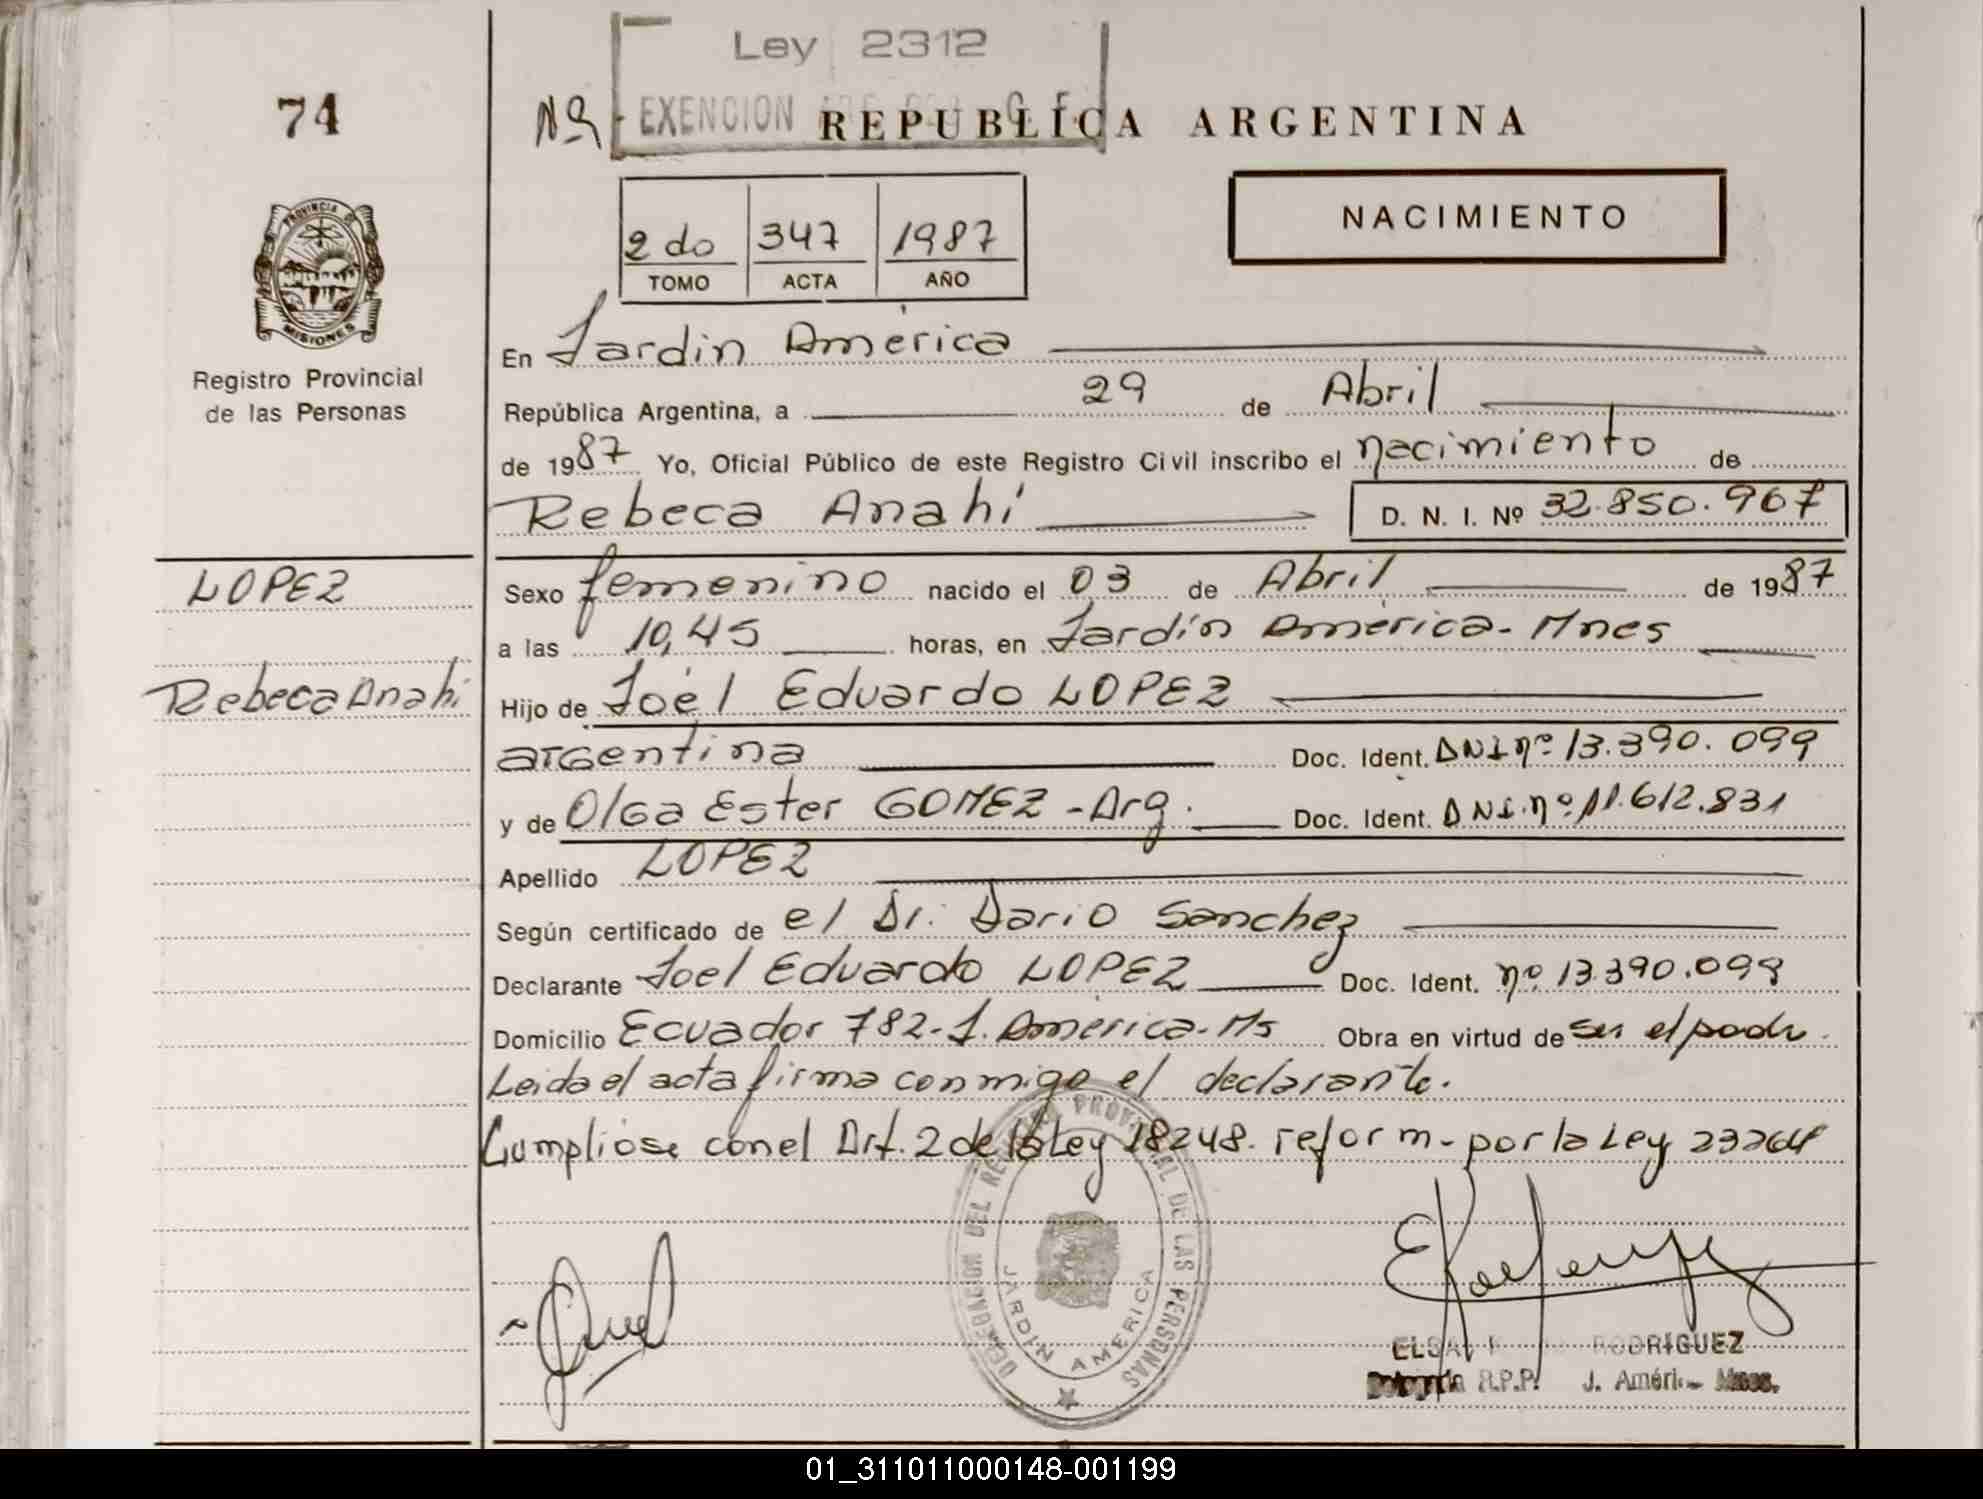 Ley 2312
74
Nº EXENCION
REPUBLICA ARGENTINA
NACIMIENTO
2do 347 1987
TOMO ACTA AÑO
PROVINCIA DE
MISIONES
Registro Provincial
de las Personas
En Jardin América
República Argentina, a 29 de Abril
de 1987 Yo, Oficial Público de este Registro Civil inscribo el nacimiento de
Rebeca Anahí D. N. I. Nº 32.850.967
LOPEZ
Rebeca Anahi
Sexo femenino nacido el 03 de Abril de 1987
a las 10,45 horas, en Jardín América - Mnes
Hijo de Joel Eduardo LOPEZ
argentina Doc. Ident. DNI nº 13.390.099
y de Olga Ester GOMEZ - Arg. Doc. Ident. DNI. nº 11.612.831
Apellido LOPEZ
Según certificado de el Dr. Dario Sanchez
Declarante Joel Eduardo LOPEZ Doc. Ident. nº 13.390.099
Domicilio Ecuador 782 - J. América - Ms Obra en virtud de ser el padre.
Leida el acta firma conmigo el declarante.
Cumpliose con el Art. 2 de la Ley 18248. reform - por la Ley 23264
DELEGACION DEL REGISTRO PROVINCIAL DE LAS PERSONAS
JARDIN AMERICA
ELSA K RODRIGUEZ
Delegada R.P.P. J. América Mnes.
01_311011000148-001199